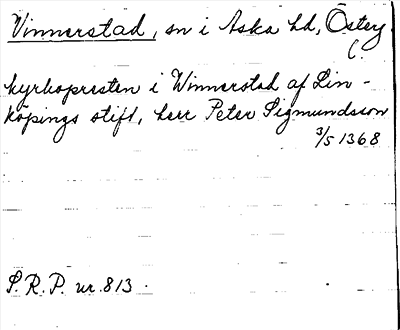 Vinnerstad, sn i Aska hd, Österg.
C.
kyrkopresten i Winnerstad af Lin-
köpings stift, herr Peter Sigmundsson
3/5 1368
S.R.P. nr. 813.